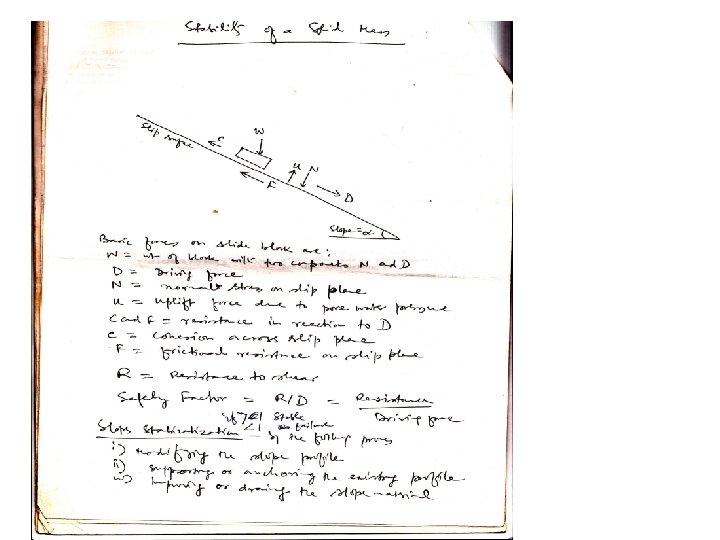 Stability of a Slid Mass
W
Slip surface
c
U N
F
D
Slope = α
Basic forces on slide block are:
W = wt of block with two components N and D
D = Driving force
N = normal stress on slip plane
u = uplift force due to pore water pressure
C and F = resistance in reaction to D
C = Cohesion across slip plane
F = frictional resistance on slip plane
R = Resistance to shear
Safety Factor = R/D = Resistance
Driving force
if >1 Stable
<1 failure
Slope Stabilization by the following process
i) modifying the slope profile
ii) supporting or anchoring the existing profile
iii) Improving or draining the slope material